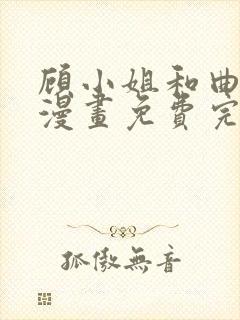 顾小姐和曲
漫畫免費完
孤傲無音